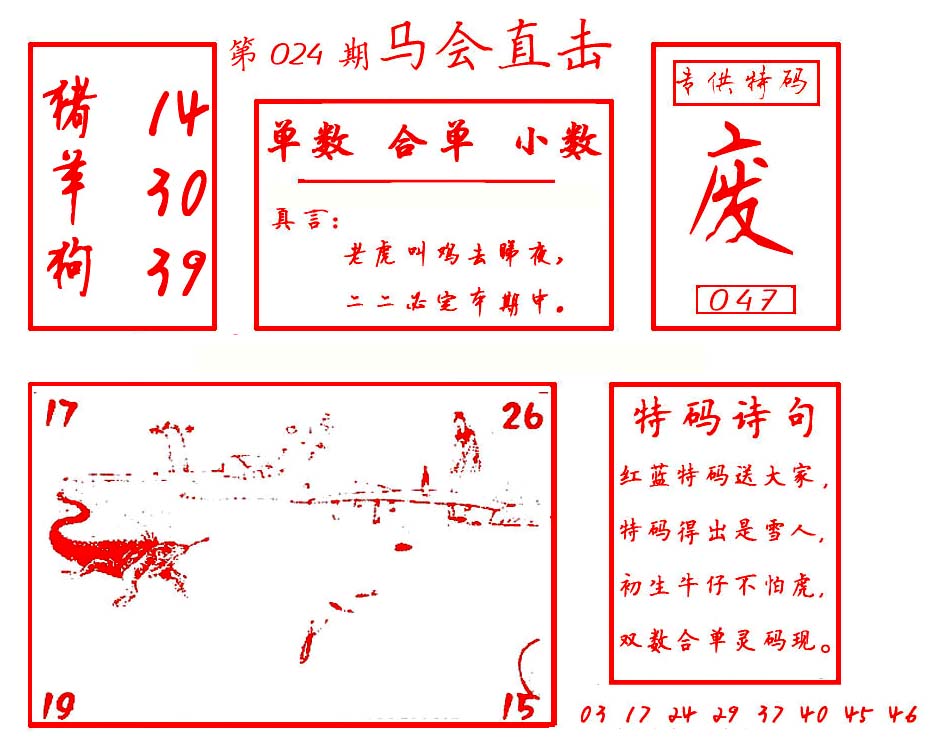 第 024 期 马会直击
猪 14
羊 30
狗 39
单数 合单 小数
真言:
老虎叫鸡去睇夜,
二二必定本期中。
专供特码
废
047
17 26
19 15
特码诗句
红蓝特码送大家,
特码得出是雪人,
初生牛仔不怕虎,
双数合单灵码现。
03 17 24 29 37 40 45 46